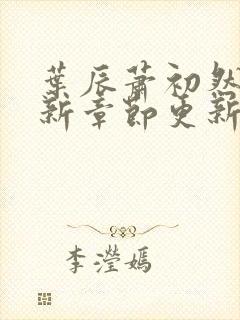 葉辰蕭初然
新章節更新
李瀅嫣